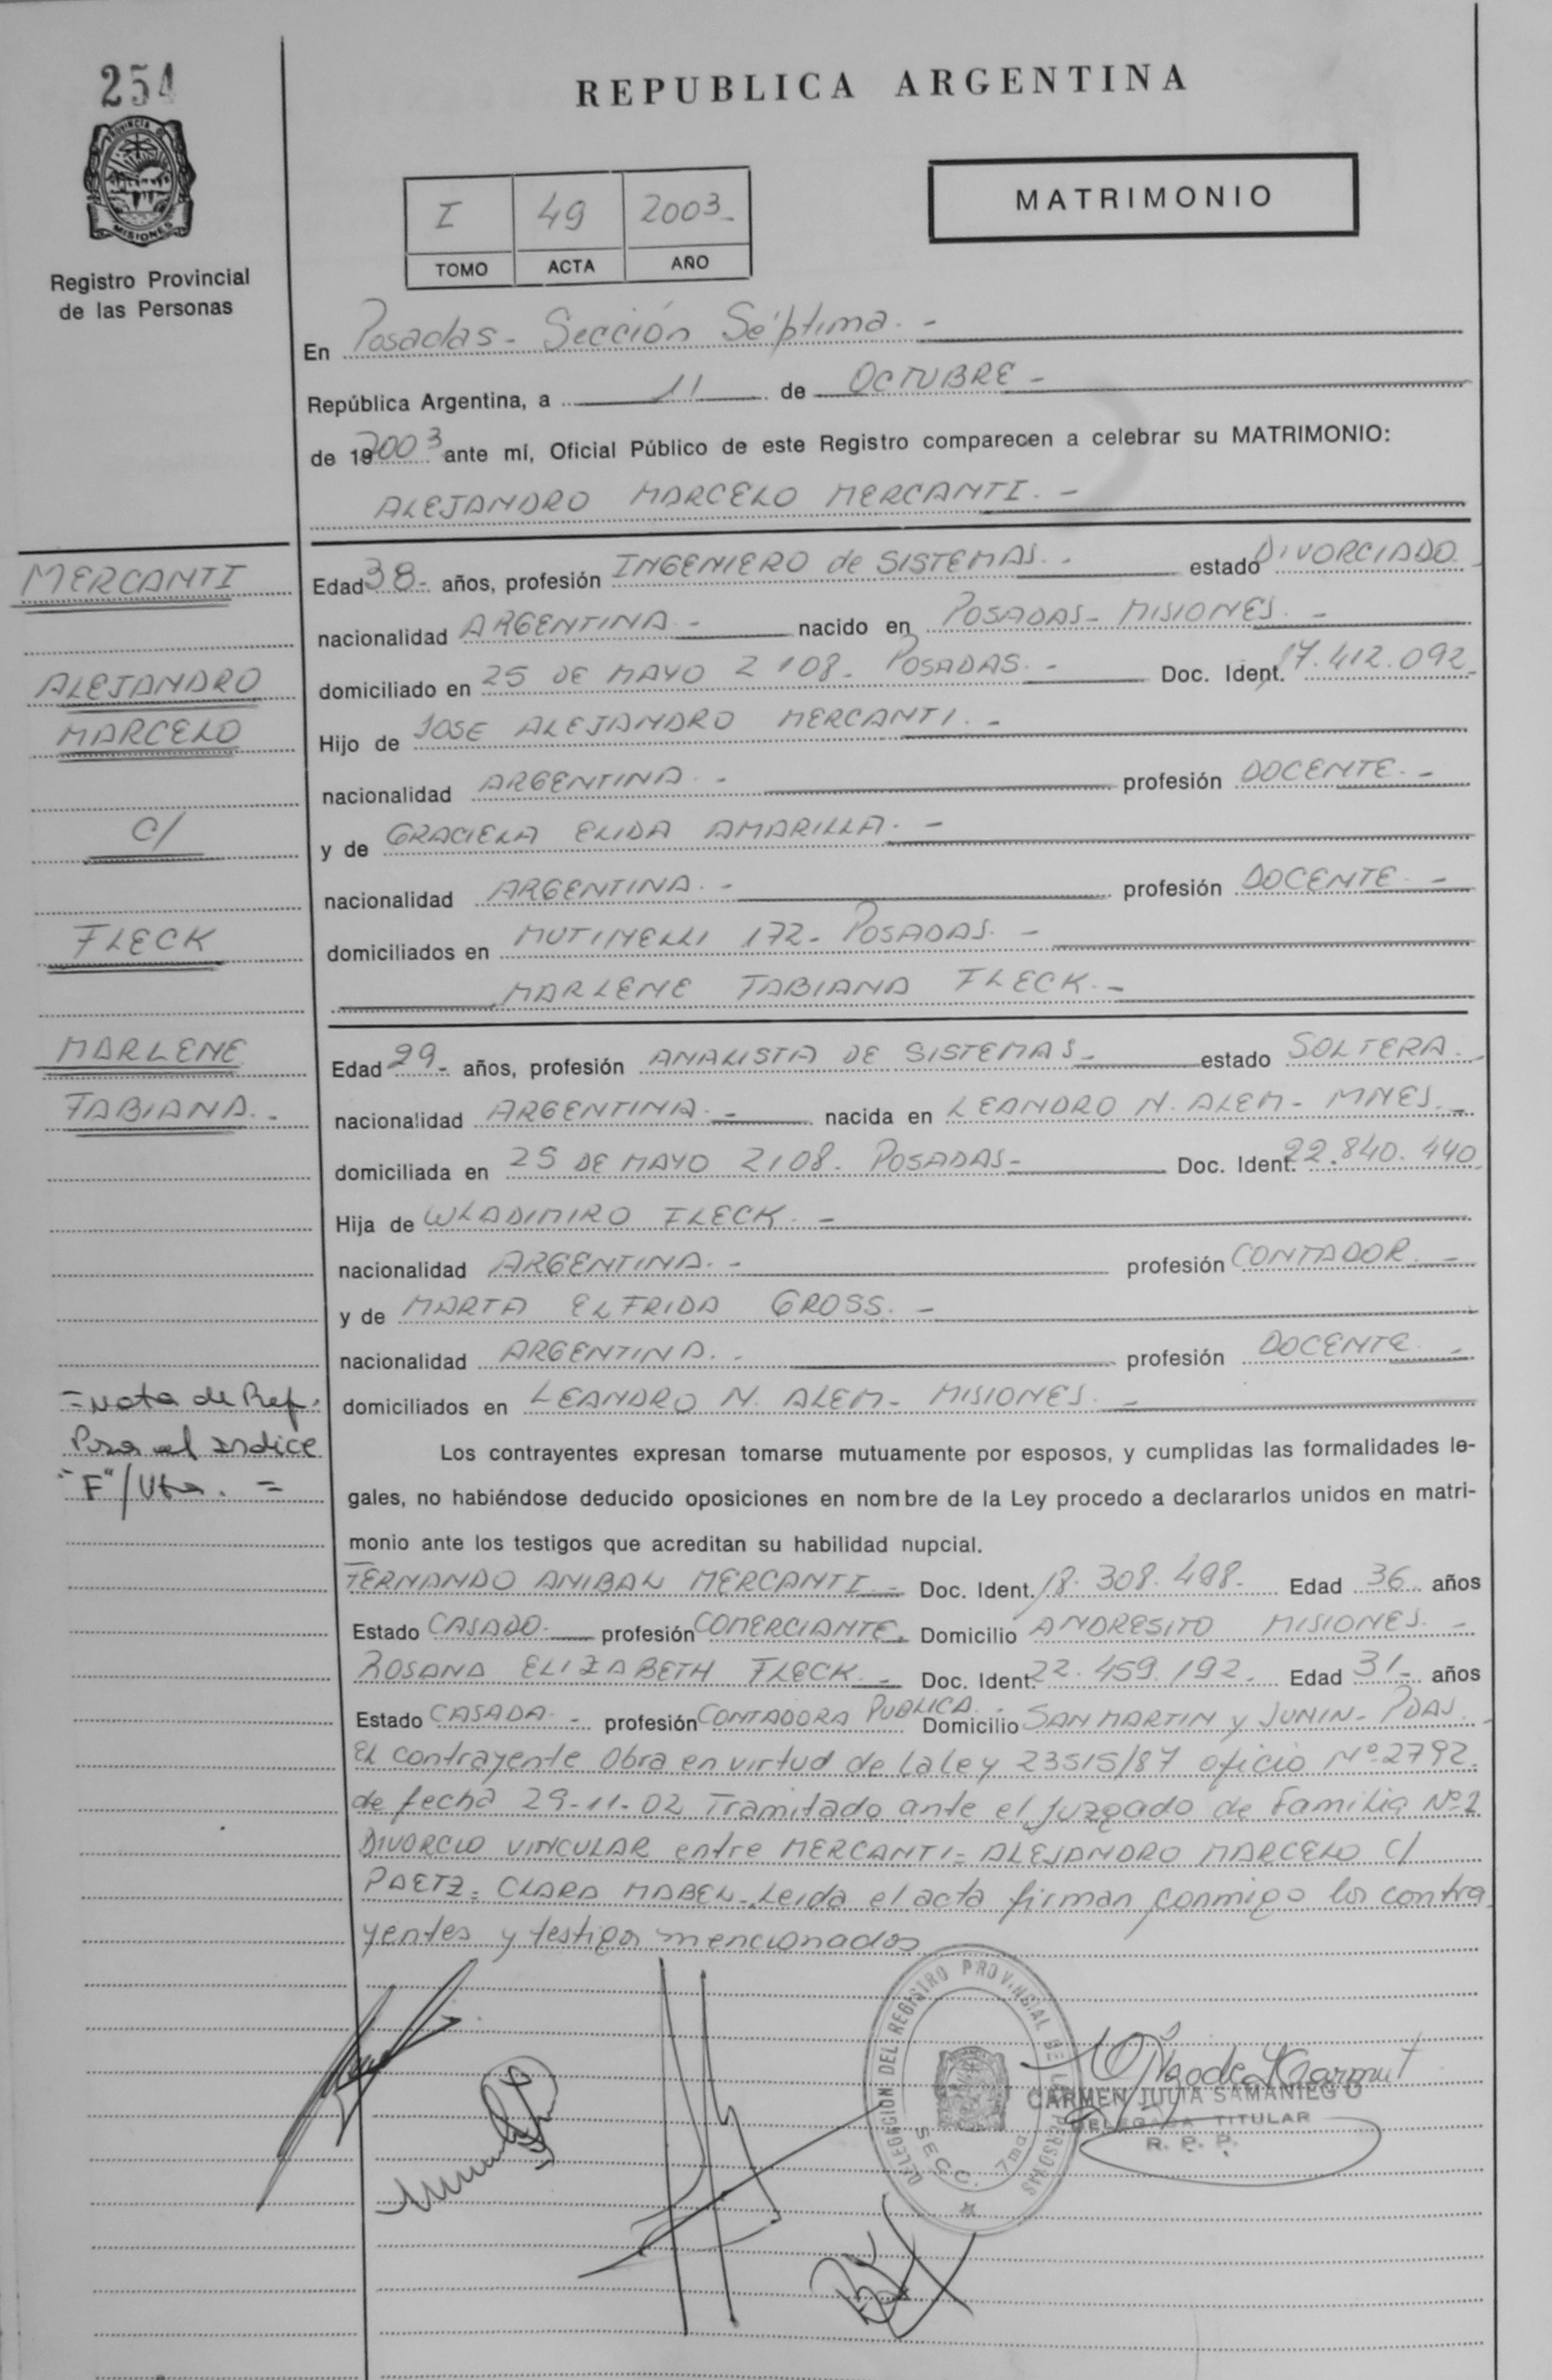 254
REPUBLICA ARGENTINA
PROVINCIA DE
MISIONES
Registro Provincial
de las Personas
I 49 2003-
TOMO ACTA AÑO
MATRIMONIO
En Posadas - Sección Séptima. -
República Argentina, a 11 de OCTUBRE -
de 192003 ante mí, Oficial Público de este Registro comparecen a celebrar su MATRIMONIO:
ALEJANDRO MARCELO MERCANTI. -
MERCANTI
ALEJANDRO
MARCELO
C/
FLECK
MARLENE
FABIANA. -
Edad 38- años, profesión INGENIERO de SISTEMAS. - estado DIVORCIADO
nacionalidad ARGENTINA - nacido en POSADAS - MISIONES. -
domiciliado en 25 DE MAYO 2108 - POSADAS. - Doc. Ident. 17.412.092-
Hijo de JOSE ALEJANDRO MERCANTI. -
nacionalidad ARGENTINA - profesión DOCENTE. -
y de GRACIELA ELIDA AMARILLA. -
nacionalidad ARGENTINA. - profesión DOCENTE -
domiciliados en MUTINELLI 172- POSADAS. -
MARLENE FABIANA FLECK. -
Edad 29- años, profesión ANALISTA DE SISTEMAS - estado SOLTERA.
nacionalidad ARGENTINA. - nacida en LEANDRO N. ALEM - MNES. -
domiciliada en 25 DE MAYO 2108. POSADAS - Doc. Ident. 22.840.440
Hija de WLADIMIRO FLECK. -
nacionalidad ARGENTINA. - profesión CONTADOR. -
y de MARTA ELFRIDA GROSS. -
nacionalidad ARGENTINA. - profesión DOCENTE -
domiciliados en LEANDRO N. ALEM - MISIONES. -
= Nota de Ref.
Para el Indice
"F"/Vta. =
Los contrayentes expresan tomarse mutuamente por esposos, y cumplidas las formalidades le-
gales, no habiéndose deducido oposiciones en nombre de la Ley procedo a declararlos unidos en matri-
monio ante los testigos que acreditan su habilidad nupcial.
FERNANDO ANIBAL MERCANTI - Doc. Ident. 18.308.498- Edad 36 años
Estado CASADO - profesión COMERCIANTE. Domicilio ANDRESITO MISIONES. -
ROSANA ELIZABETH FLECK. - Doc. Ident. 22.459.192. Edad 31- años
Estado CASADA - profesión CONTADORA PUBLICA - Domicilio SAN MARTIN y JUNIN - PDAS.
El contrayente Obra en virtud de la ley 23515/87 oficio Nº 2792.
de fecha 29-11-02 Tramitado ante el Juzgado de Familia Nº 2
DIVORCIO VINCULAR entre MERCANTI = ALEJANDRO MARCELO C/
PAETZ = CLARA MABEL - Leida el acta firman conmigo los contra
yentes y testigos mencionados
DELEGACION DEL REGISTRO PROVINCIAL DE LAS PERSONAS
SECC. 7ma
CARMEN JULIA SAMANIEGO
DELEGADA TITULAR
R. P. P.